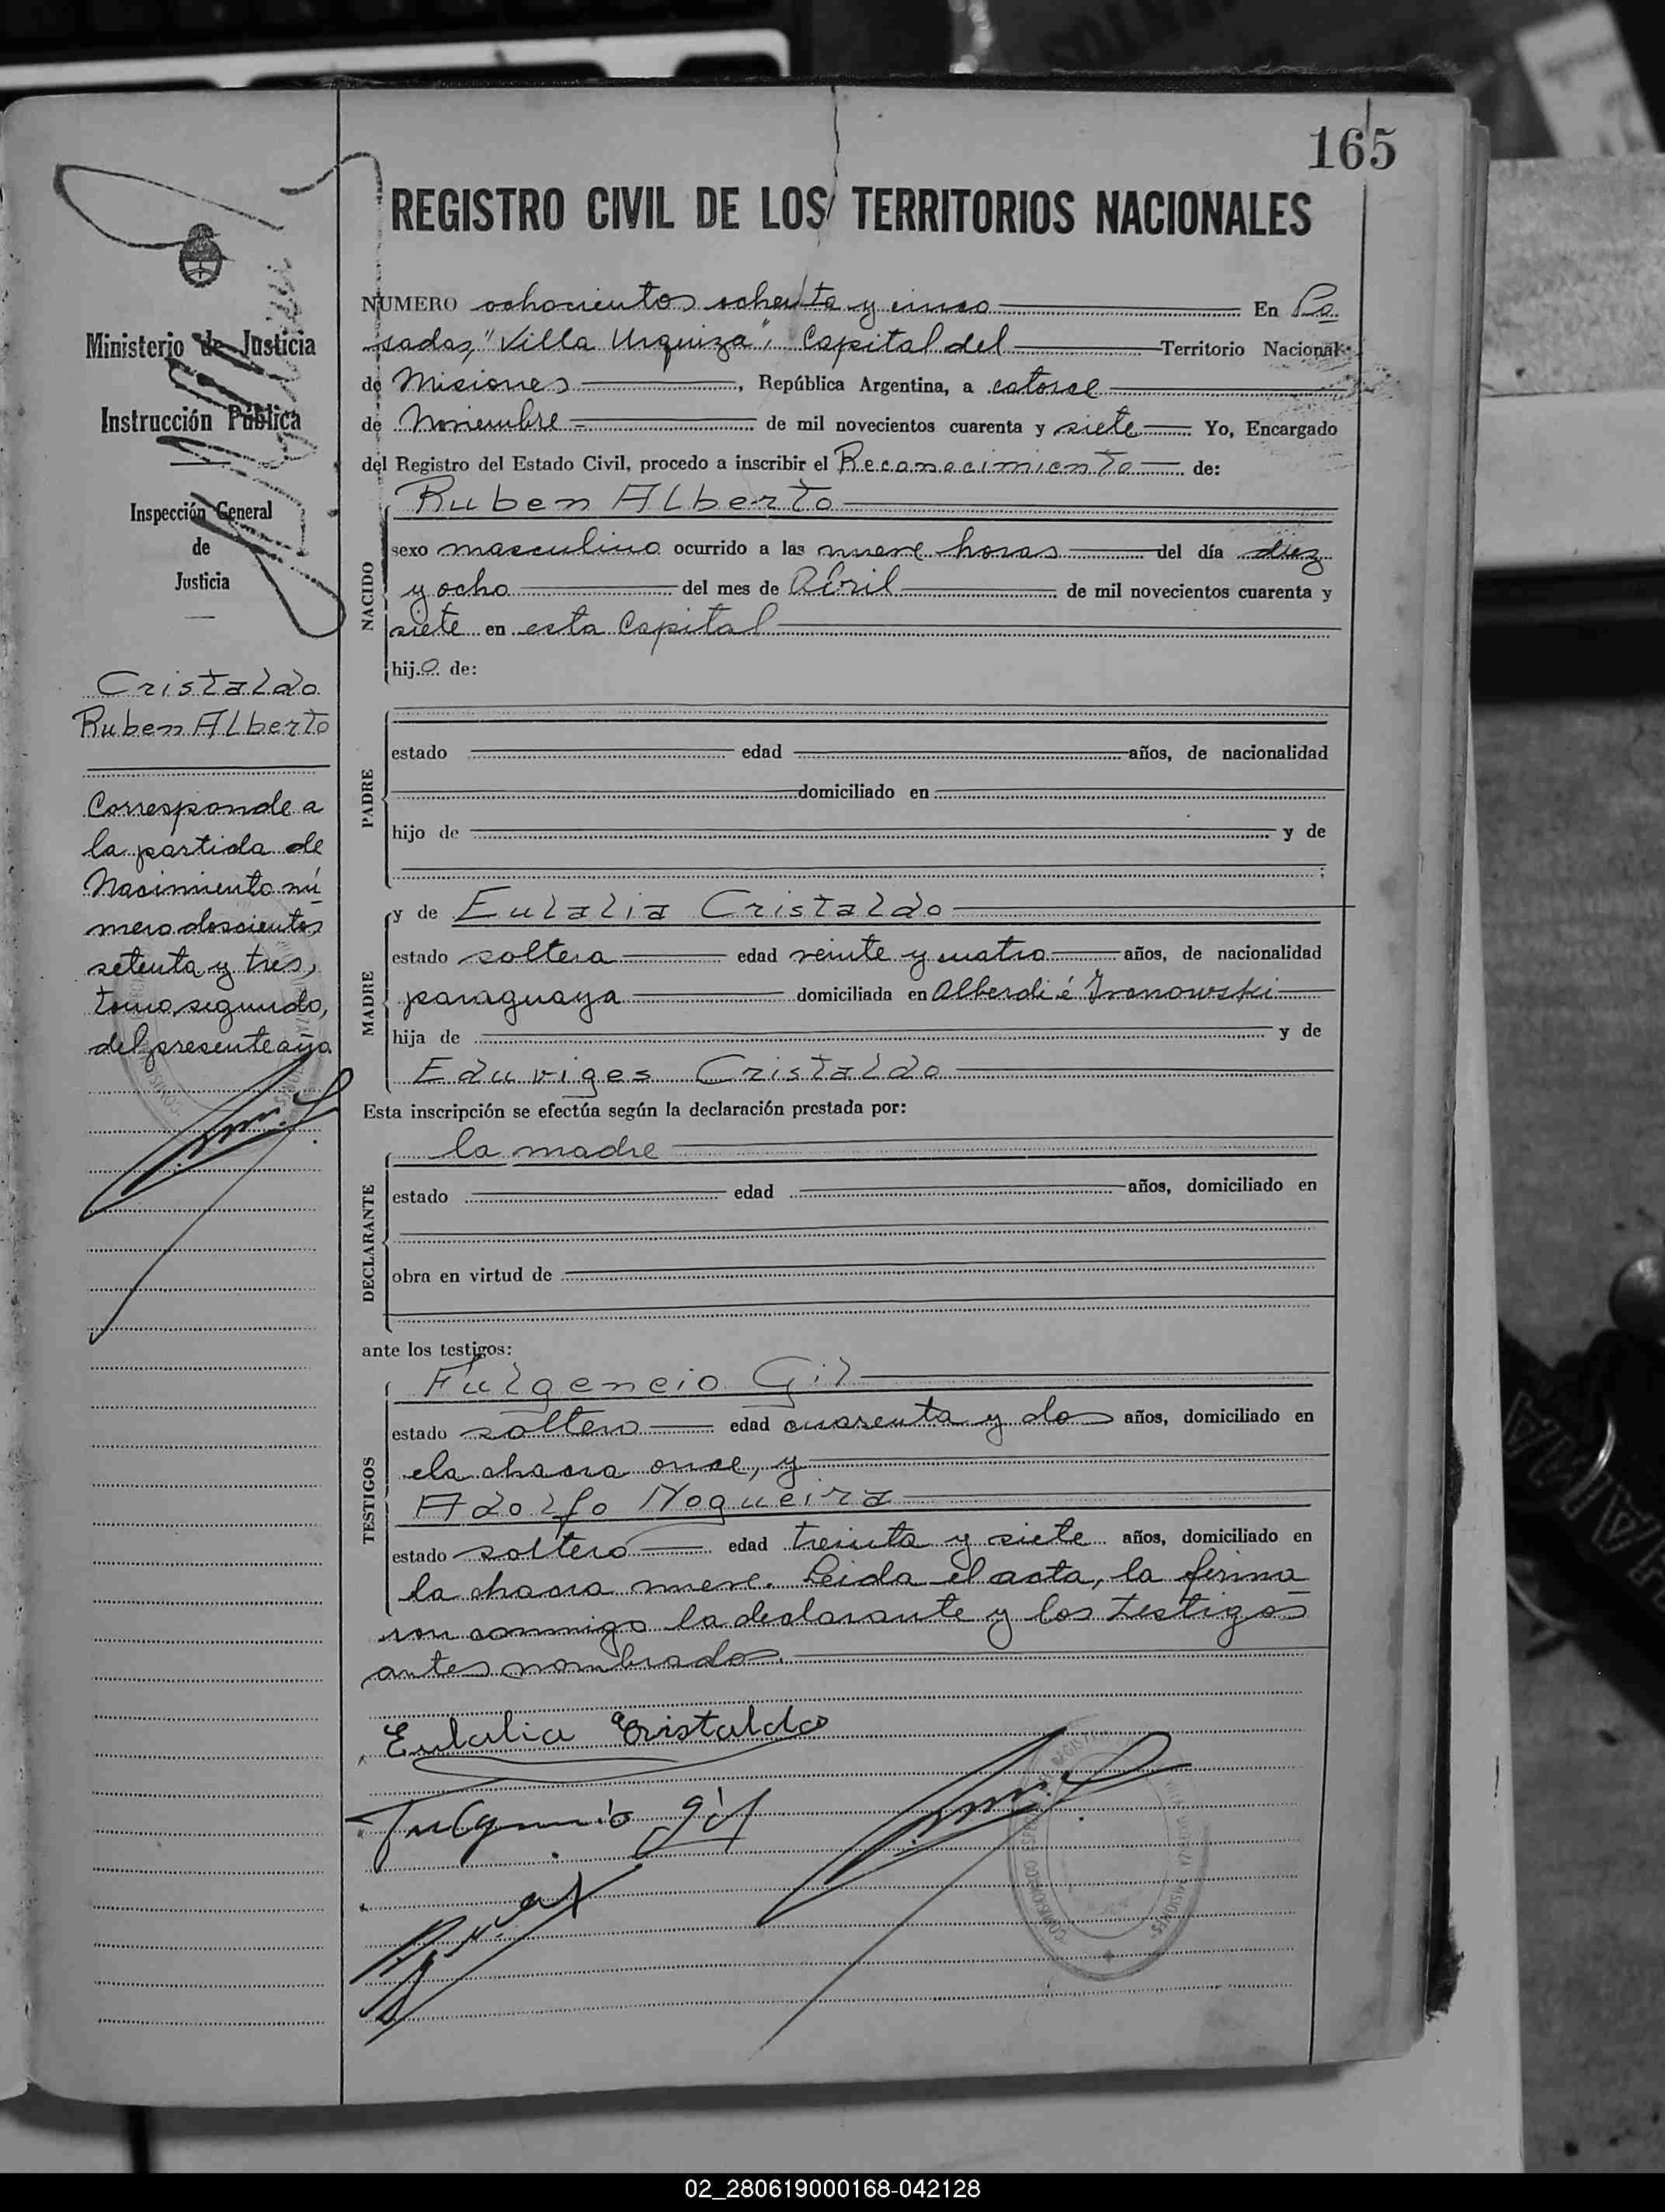 165
REGISTRO CIVIL DE LOS TERRITORIOS NACIONALES
Ministerio de Justicia
Instrucción Pública
Inspección General
de
Justicia
Cristaldo
Ruben Alberto
Corresponde a
la partida de
Nacimiento nú
mero doscientos
setenta y tres,
tomo segundo,
del presente año
NUMERO ochocientos ochenta y cinco En Po
sadas, "Villa Urquiza", Capital del Territorio Nacional
de Misiones, República Argentina, a catorce
de Noviembre de mil novecientos cuarenta y siete Yo, Encargado
del Registro del Estado Civil, procedo a inscribir el Reconocimiento de:
NACIDO
Ruben Alberto
sexo masculino ocurrido a las nueve horas del día diez
y ocho del mes de Abril de mil novecientos cuarenta y
siete en esta Capital
hijo de:
PADRE
estado edad años, de nacionalidad
domiciliado en
hijo de y de
;
MADRE
y de Eulalia Cristaldo
estado soltera edad veinte y cuatro años, de nacionalidad
paraguaya domiciliada en Alberdi é
hija de y de
Eduviges Cristaldo
Esta inscripción se efectúa según la declaración prestada por:
DECLARANTE
la madre
estado edad años, domiciliado en
obra en virtud de
ante los testigos:
TESTIGOS
Fulgencio Gil
estado soltero edad cuarenta y dos años, domiciliado en
la chacra once, y
Adolfo Nogueira
estado soltero edad treinta y siete años, domiciliado en
la chacra nueve. Leida el acta, la firma
ron conmigo la declarante y los testigos
antes nombrados.
Eulalia Cristaldo
Fulgencio Gil
02_280619000168-042128